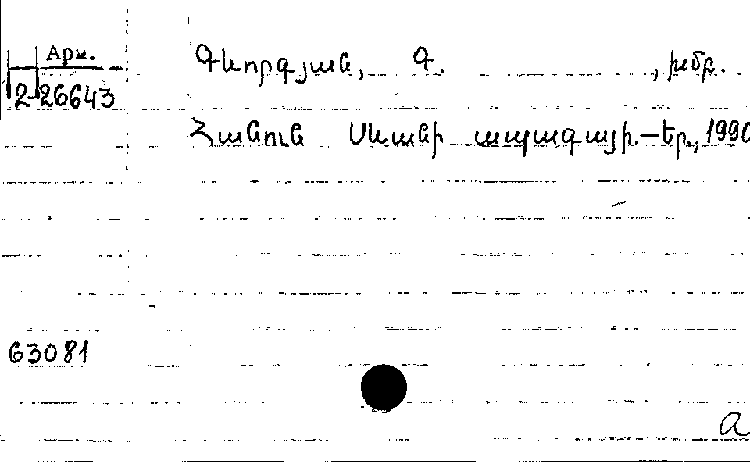 Арм.
2-26643
Գևորգյան, Գ. , խմբ.
Հանուն Սևանի ապագայի.—Եր., 1990
63081
a